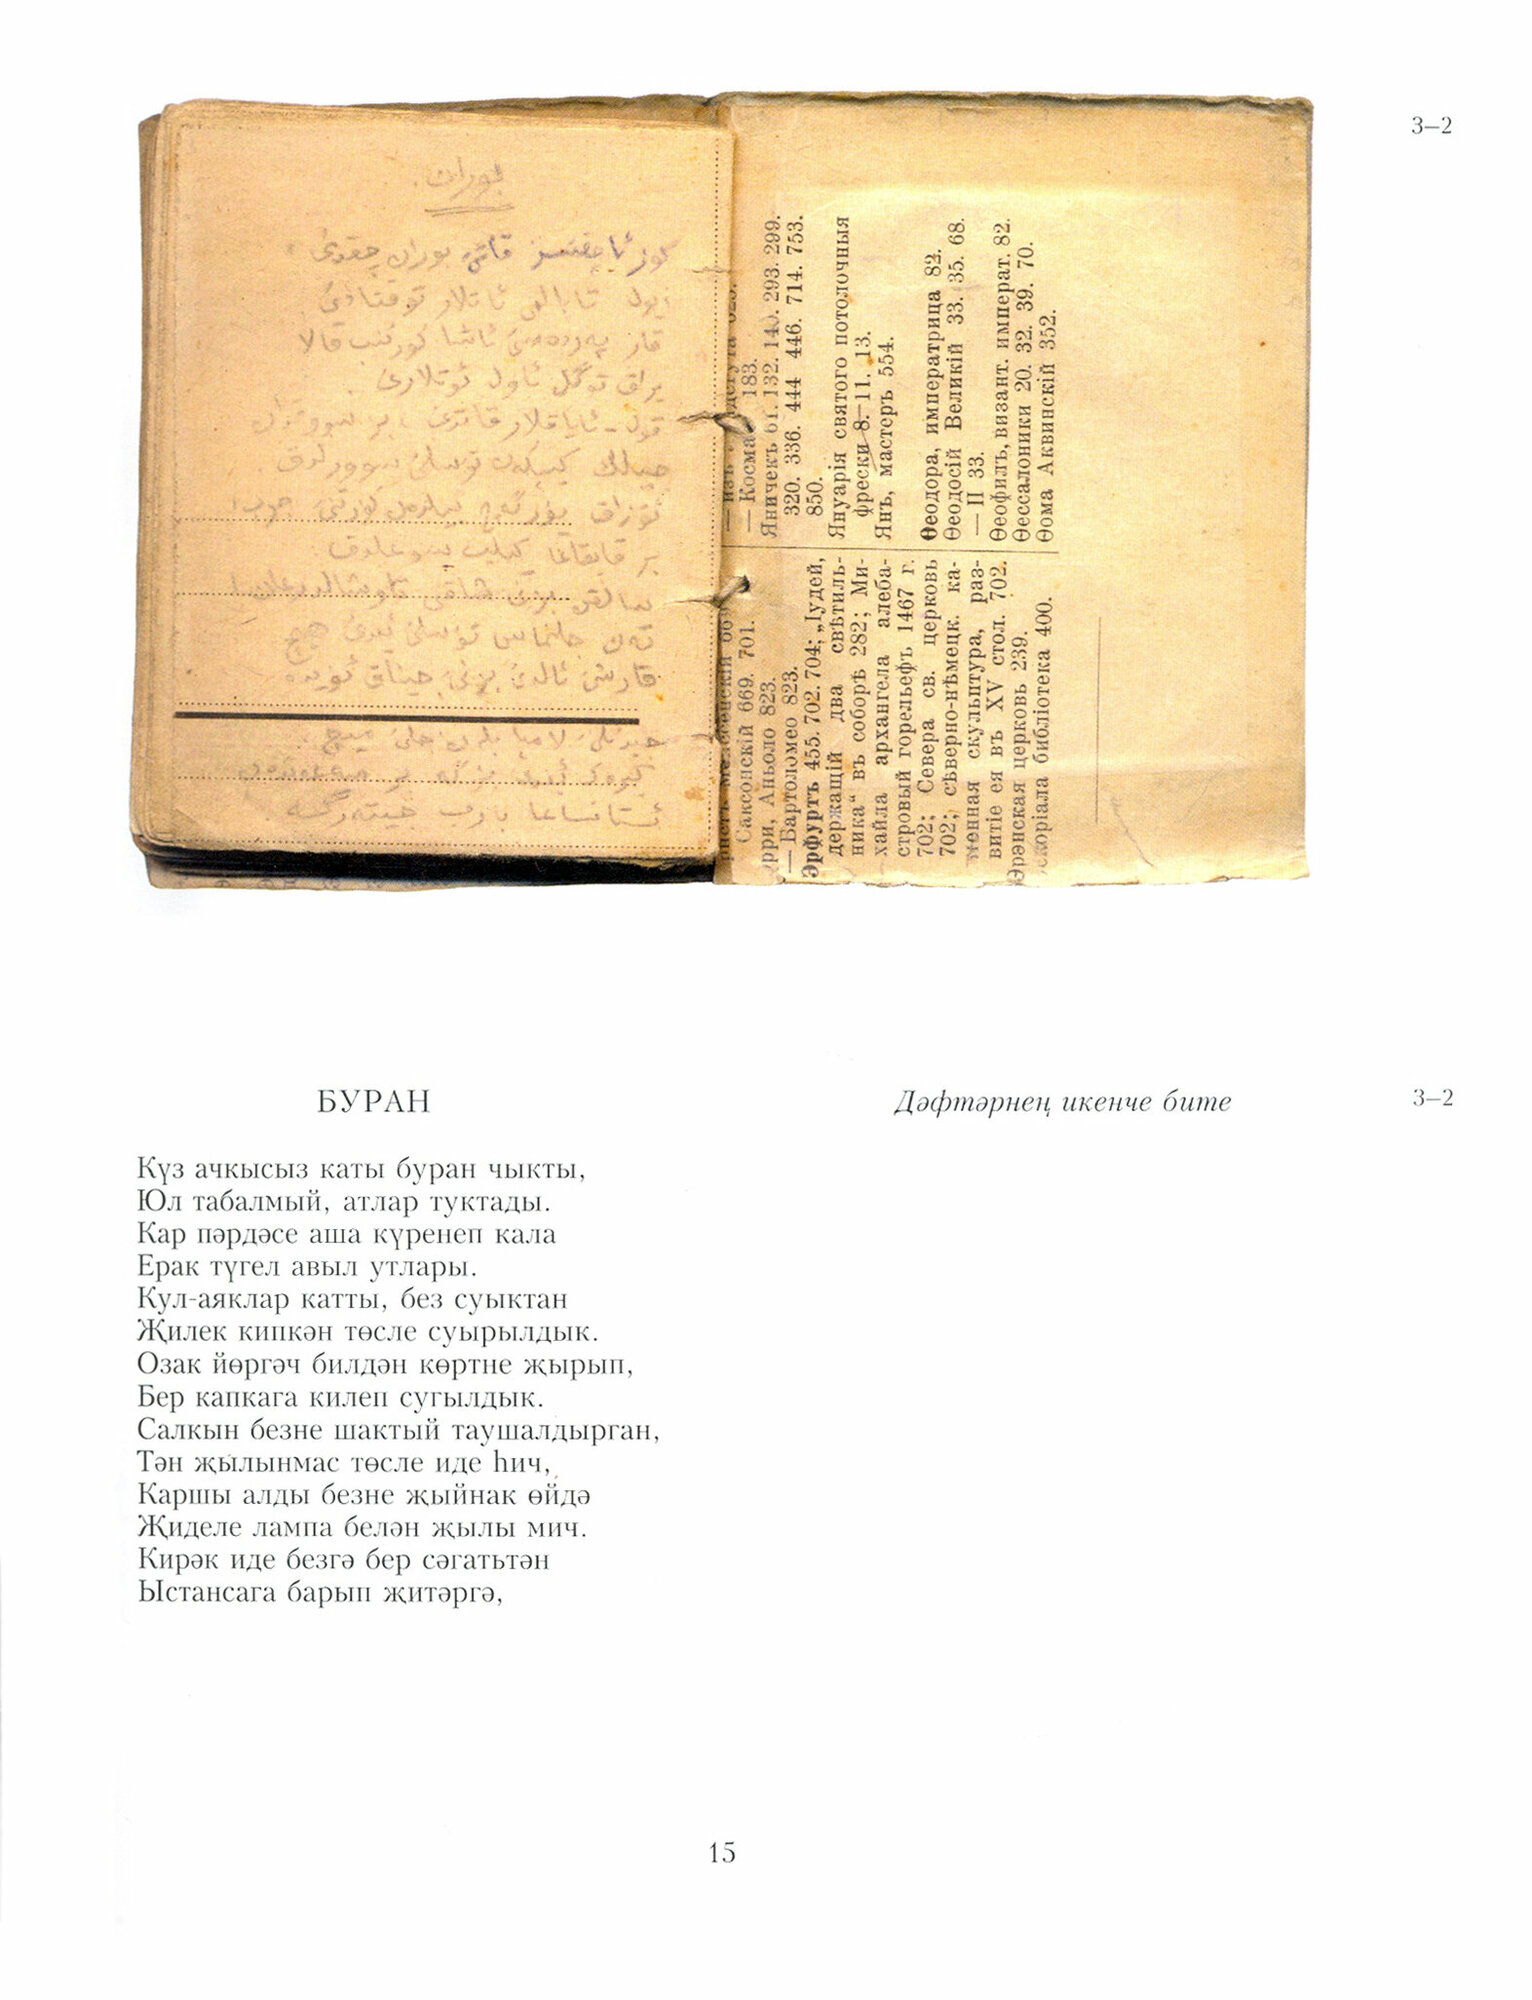 3–2
بوران.
كوز ئاچقىسز قاتى بوران چقدى،
يول تابالمى ئاتلار توقتادى
قار پەردەسى ئاشا كورنب قالا
يراق توگل ئاول ئوتلارى.
قول-ئاياقلار قاتدى، بز سووقدان
جيلك كيبكەن توسلى سوورلدق.
ئوزاق يورگەچ بيلدەن كورتنى جرب،
بر قابقاغا كيلب سوغلدق.
سالقن بزنى شاقتى تاوشالدرغان،
تەن جلنماس توسلى ئيدى هيچ
قارشى ئالدى بزنى جيناق ئويدە
جيدىلى لامپا بلەن جلى ميچ.
كيرەك ئيدى بزگە بر سەعەتدەن
ئستانساغا بارب جيتەرگە
— Косма 183.
Яничекъ 61. 132. 140. 293. 299.
320. 336. 444 446. 714. 753.
850.
Януарія святого потолочныя
фрески 8. 11. 13.
Янъ, мастеръ 554.
Ѳеодора, императрица 82.
Ѳеодосій Великій 33. 35. 68.
— II 33.
Ѳеофилъ, визант. императ. 82.
Ѳессалоники 20. 32. 39. 70.
Ѳома Аквинскій 352.
Саксонскій 669. 701.
рри, Аньоло 823.
— Бартоломео 823.
Эрфуртъ 455. 702. 704; „Іудей,
держащій два свѣтиль-
ника“ въ соборѣ 282; Ми-
хайла архангела алеба-
стровый горельефъ 1467 г.
702; Севера св. церковь
702; сѣверно-нѣмецк. ка-
менная скульптура, раз-
витіе ея въ XV стол. 702.
Эрэнская церковь 239.
скоріала библіотека 400.
БУРАН
Дәфтәрнең икенче бите
3–2
Күз ачкысыз каты буран чыкты,
Юл табалмый, атлар туктады.
Кар пәрдәсе аша күренеп кала
Ерак түгел авыл утлары.
Кул-аяклар катты, без суыктан
Җилек кипкән төсле суырылдык.
Озак йөргәч билдән көртне җырып,
Бер капкага килеп сугылдык.
Салкын безне шактый таушалдырган,
Тән җылынмас төсле иде һич,
Каршы алды безне җыйнак өйдә
Җиделе лампа белән җылы мич.
Кирәк иде безгә бер сәгатьтән
Ыстансага барып җитәргә,
15